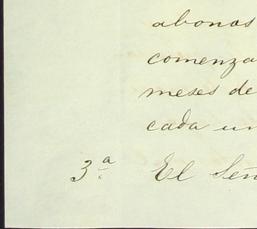 abonas
comenza
meses de
cada un
3ª El Señ